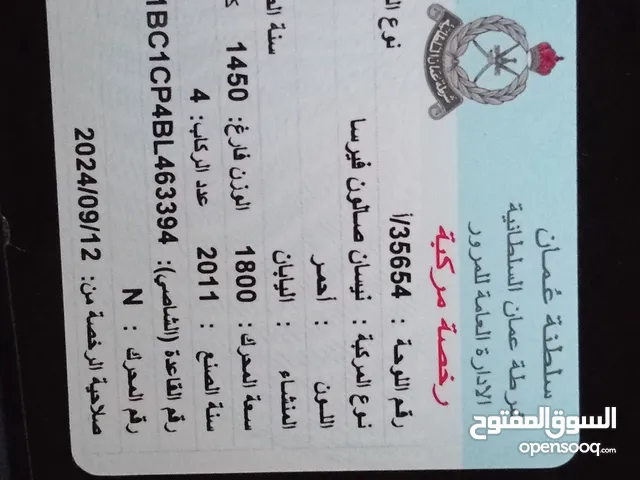 سلطنة عمان
شرطة عمان السلطانية
الادارة العامة للمرور
رخصة مركبة
رقم اللوحة : 35654/أ
نوع المركبة : نيسان صالون فيرسا
اللون : أحمر
المنشاء : اليابان
سعة المحرك: 1800 الوزن فارغ: 1450
سنة الصنع : 2011 عدد الركاب: 4
رقم القاعدة (الشاصي): 1BC1CP4BL463394
رقم المحرك : N
صلاحية الرخصة من: 2024/09/12
نوع
سنة
شرطة عمان السلطانية
السوق المفتوح
opensooq.com